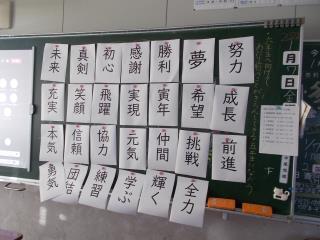 努力
夢
勝利
感謝
初心
真剣
未来
成長
希望
寅年
実現
飛躍
笑顔
充実
前進
挑戦
仲間
元気
協力
信頼
本気
全力
輝く
学ぶ
練習
団結
勇気